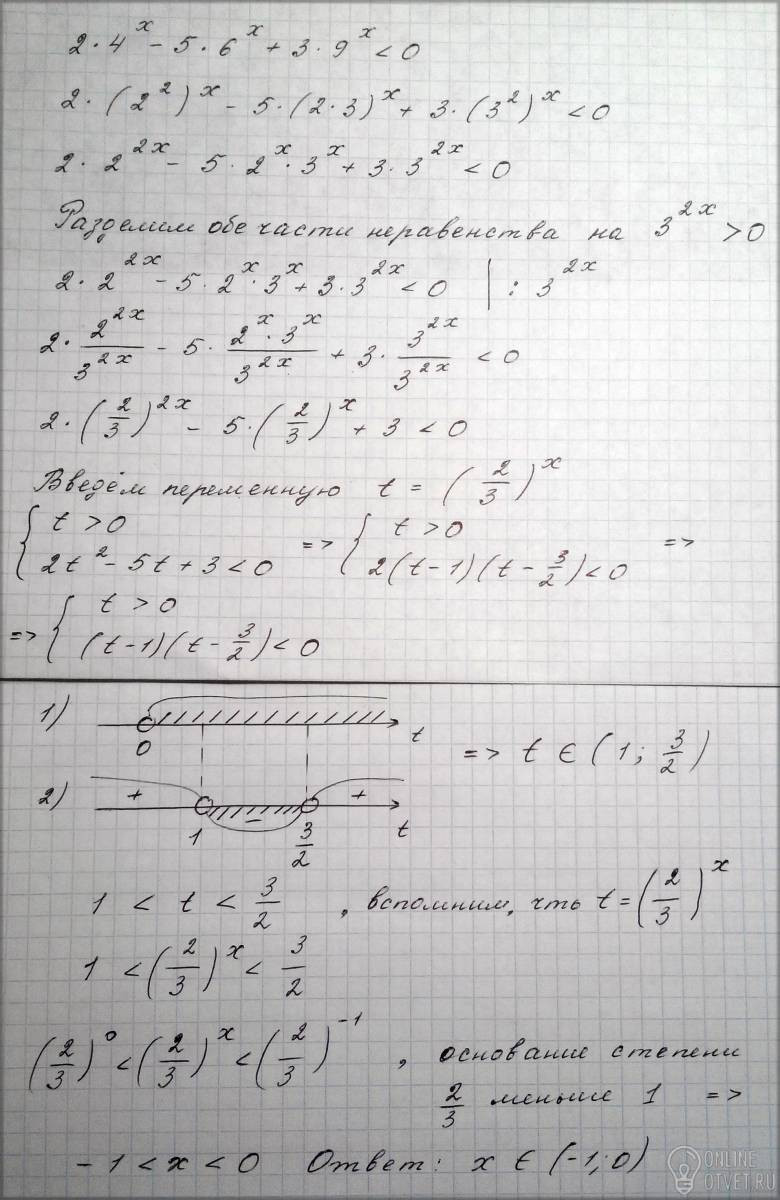 2·4^x - 5·6^x + 3·9^x < 0
2·(2^2)^x - 5·(2·3)^x + 3·(3^2)^x < 0
2·2^{2x} - 5·2^x·3^x + 3·3^{2x} < 0
Разделим обе части неравенства на 3^{2x} > 0
2·2^{2x} - 5·2^x·3^x + 3·3^{2x} < 0 | : 3^{2x}
2·\frac{2^{2x}}{3^{2x}} - 5·\frac{2^x·3^x}{3^{2x}} + 3·\frac{3^{2x}}{3^{2x}} < 0
2·(\frac{2}{3})^{2x} - 5·(\frac{2}{3})^x + 3 < 0
Введём переменную t = (\frac{2}{3})^x
{ t > 0 => { t > 0 =>
2t^2 - 5t + 3 < 0 2(t-1)(t-\frac{3}{2}) < 0
=> { t > 0
(t-1)(t-\frac{3}{2}) < 0
1)
0 t
=> t ∈ (1; \frac{3}{2})
2) + - +
1 \frac{3}{2} t
1 < t < \frac{3}{2} , вспомним, что t = (\frac{2}{3})^x
1 < (\frac{2}{3})^x < \frac{3}{2}
(\frac{2}{3})^0 < (\frac{2}{3})^x < (\frac{2}{3})^{-1} , основание степени
\frac{2}{3} меньше 1 =>
-1 < x < 0 Ответ: x ∈ (-1; 0)
ONLINE
OTVET.RU